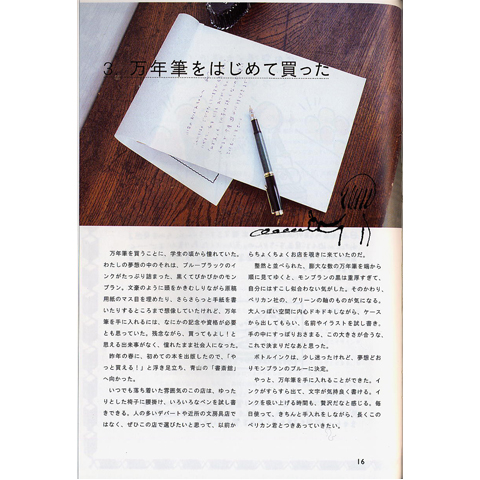 3 万年筆をはじめて買った
万年筆を買うことに、学生の頃から憧れていた。
わたしの夢想の中のそれは、ブルーブラックのイ
ンクがたっぷり詰まった、黒くてぴかぴかのモン
ブラン。文豪のように頭をかきむしりながら原稿
用紙のマス目を埋めたり、さらさらっと手紙を書
いたりするところまで想像していたけれど、万年
筆を手に入れるには、なにかの記念や資格が必要
とも思っていた。残念ながら、買ってもよし!と
思える出来事がなく、憧れたまま社会人になった。
昨年の春に、初めての本を出版したので、「や
っと買える!」と浮き足立ち、青山の「書斎館」
へ向かった。
いつでも落ち着いた雰囲気のこの店は、ゆった
りとした椅子に腰掛け、いろいろなペンを試し書
きできる。人の多いデパートや近所の文房具店で
はなく、ぜひこの店で選びたいと思って、以前か
らちょくちょくお店を覗きに来ていたのだ。
整然と並べられた、膨大な数の万年筆を端から
順に見てゆくと、モンブランの黒は重厚すぎて、
自分にはすこし似合わない気がした。そのかわり、
ペリカン社の、グリーンの軸のものが気になる。
大人っぽい空間に内心ドキドキしながら、ケース
から出してもらい、名前やイラストを試し書き。
手の中にすっぽりおさまる、この大きさが合うな、
これで決まりだなあと思った。
ボトルインクは、少し迷ったけれど、夢想どお
りモンブランのブルーに決定。
やっと、万年筆を手に入れることができた。イ
ンクがすらすら出て、文字が気持良く書ける。イ
ンクを吸い上げる時間も、贅沢だなと感じる。毎
日使って、きちんと手入れをしながら、長くこの
ペリカン君とつきあっていきたい。
16